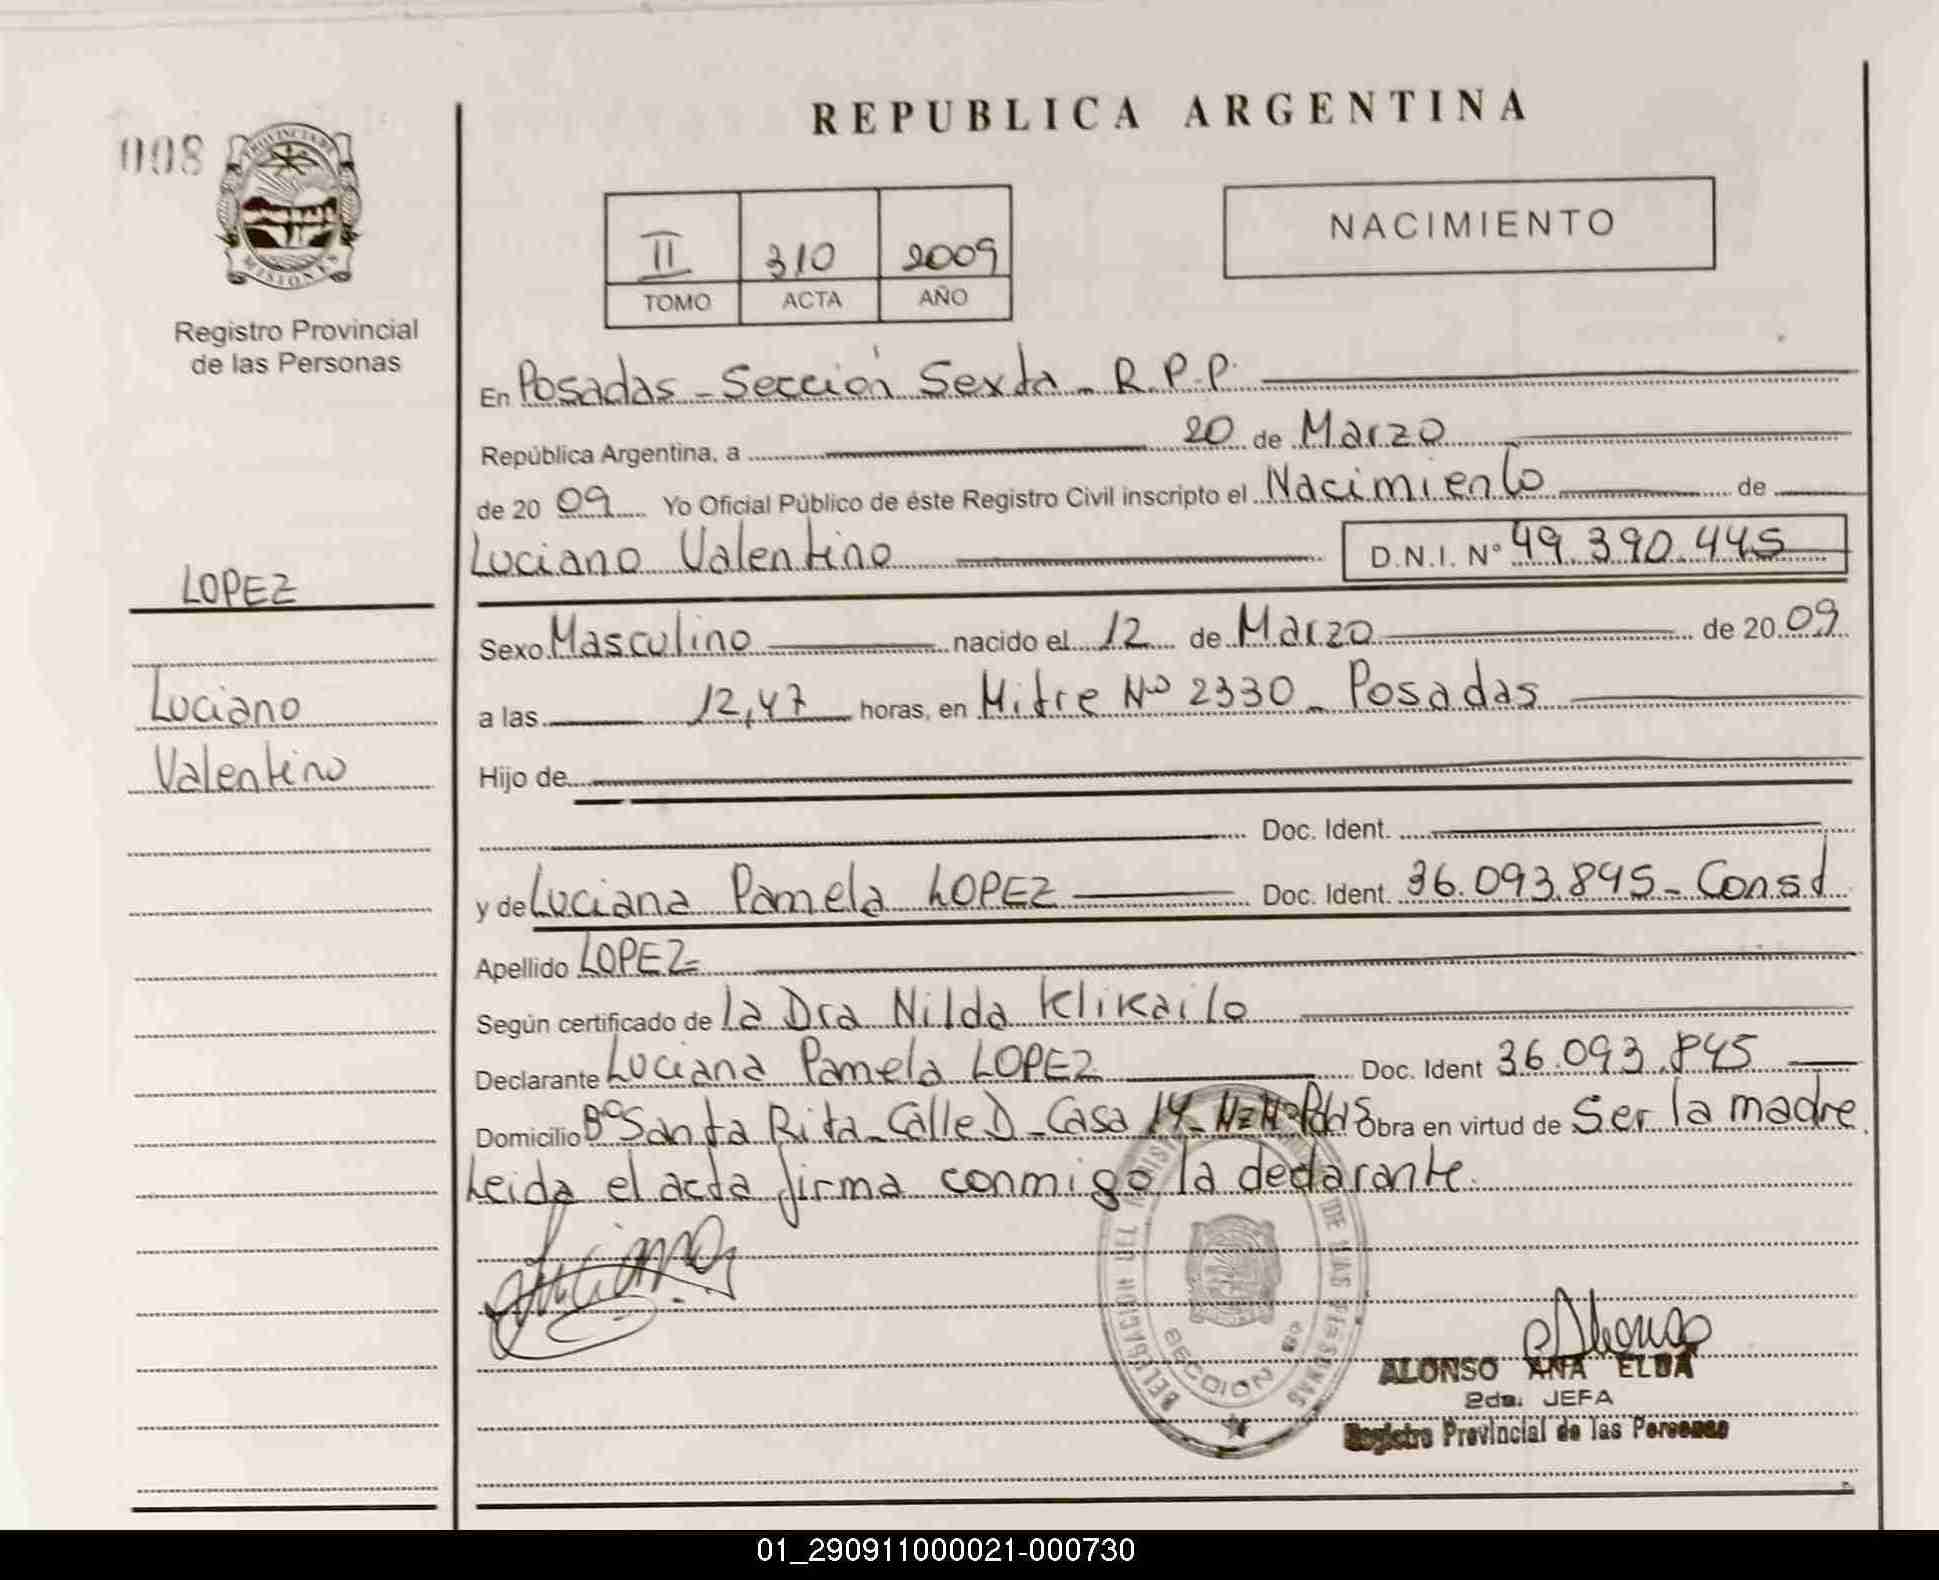 REPUBLICA ARGENTINA
008
PROVINCIA DE
MISIONES
Registro Provincial
de las Personas
II 310 2009
TOMO ACTA AÑO
NACIMIENTO
En Posadas - Sección Sexta - R.P.P.
República Argentina, a 20 de Marzo
de 2009 Yo Oficial Público de éste Registro Civil inscripto el Nacimiento de
Luciano Valentino D.N.I. Nº 49.390.445
LOPEZ
Luciano
Valentino
Sexo Masculino nacido el 12 de Marzo de 2009
a las 12,47 horas, en Mitre Nº 2330 - Posadas
Hijo de
Doc. Ident.
y de Luciana Pamela LOPEZ Doc. Ident. 36.093.845 - Consd
Apellido LOPEZ
Según certificado de la Dra Nilda Klikailo
Declarante Luciana Pamela LOPEZ Doc. Ident 36.093.845
Domicilio Bº Santa Rita - Calle D - Casa 14 - Obra en virtud de Ser la madre.
Leida el acta firma conmigo la declarante.
Luciana
SECCION 6º
Alonso
ALONSO ANA ELDA
2da. JEFA
Registro Provincial de las Personas
01_290911000021-000730